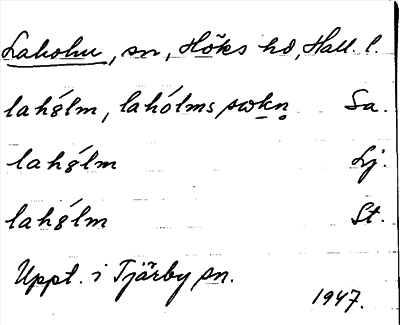 Laholm, sn, Höks hd, Hall. l.
lahólm, lahólms sωkn̥ Sa.
lahólm Lj.
lahólm St.
Uppt. i Tjärby sn.
1947.